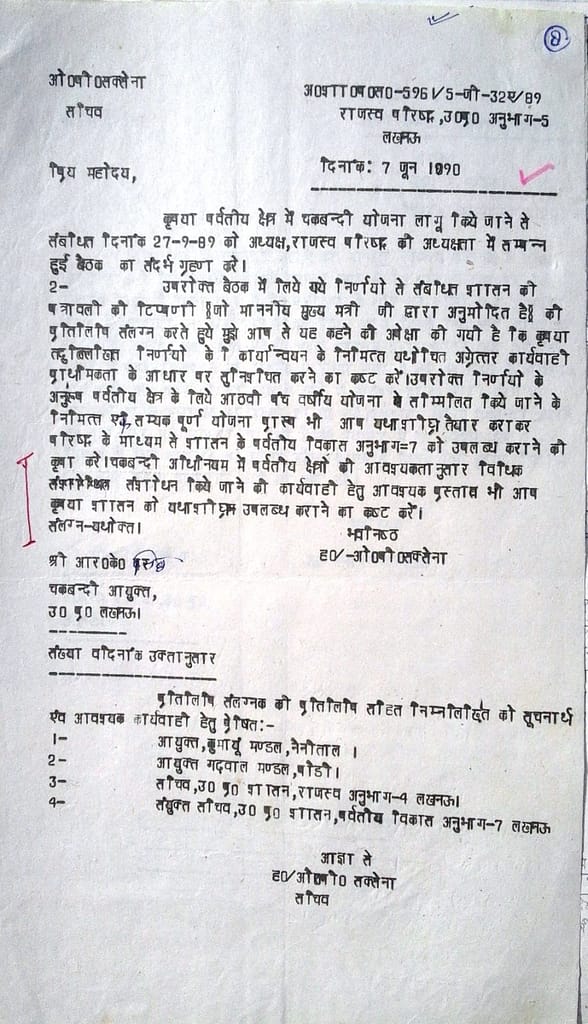 8
ओ0पी0सक्सेना
सचिव
अ0शा0प0सं0-596।/5-जी-32ए/89
राजस्व परिषद्,उ0प्र0 अनुभाग-5
लखनऊ
दिनांक: 7 जून 1990
प्रिय महोदय,
कृपया पर्वतीय क्षेत्र में चकबन्दी योजना लागू किये जाने से
संबंधित दिनांक 27-9-89 को अध्यक्ष,राजस्व परिषद् की अध्यक्षता में सम्पन्न
हुई बैठक का संदर्भ ग्रहण करें।
2- उपरोक्त बैठक में लिये गये निर्णयों से संबंधित शासन की
पत्रावली की टिप्पणी §जो माननीय मुख्य मंत्री जी द्वारा अनुमोदित है§ की
प्रतिलिपि संलग्न करते हुये मुझे आप से यह कहने की अपेक्षा की गयी है कि कृपया
तदुल्लिखित निर्णयों के कार्यान्वयन के निमित्त यथोचित अग्रेत्तर कार्यवाही
प्राथमिकता के आधार पर सुनिश्चित करने का कष्ट करें।उपरोक्त निर्णयों के
अनुरूप पर्वतीय क्षेत्र के लिये आठवीं पंच वर्षीय योजना में सम्मिलित किये जाने के
निमित्त एक सम्यक पूर्ण योजना प्रारूप भी आप यथाशीघ्र तैयार कराकर
परिषद् के माध्यम से शासन के पर्वतीय विकास अनुभाग=7 को उपलब्ध कराने की
कृपा करें।चकबन्दी अधिनियम में पर्वतीय क्षेत्रों की आवश्यकतानुसार विधिक
संशोधन किये जाने की कार्यवाही हेतु आवश्यक प्रस्ताव भी आप
कृपया शासन को यथाशीघ्र उपलब्ध कराने का कष्ट करें।
संलग्न-यथोक्त।
भवनिष्ठ
ह0/-ओ0पी0सक्सेना
श्री आर0के0
चकबन्दी आयुक्त,
उ0 प्र0 लखनऊ।
संख्या व दिनांक उक्तानुसार
प्रतिलिपि संलग्नक की प्रतिलिपि सहित निम्नलिखित को सूचनार्थ
एंव आवश्यक कार्यवाही हेतु प्रेषित:-
1- आयुक्त,कुमायूं मण्डल,नैनीताल ।
2- आयुक्त गढ़वाल मण्डल,पौडी।
3- सचिव,उ0 प्र0 शासन,राजस्व अनुभाग-4 लखनऊ।
4- संयुक्त सचिव,उ0 प्र0 शासन,पर्वतीय विकास अनुभाग-7 लखनऊ
आज्ञा से
ह0/ओ0पी0 सक्सेना
सचिव